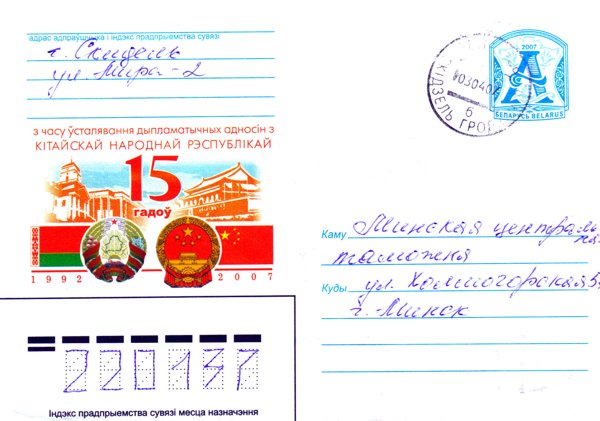 адрас адпраўшчыка і індэкс прадпрыемства сувязі
г. Скидель
ул. Мира-2
з часу ўсталявання дыпламатычных адносін з
КІТАЙСКАЙ НАРОДНАЙ РЭСПУБЛІКАЙ
15
гадоў
1992 2007
2007
А
БЕЛАРУСЬ BELARUS
030407
б
Каму Минская централь
ная
таможня
Куды ул. Холмогорская
г. Минск
Індэкс прадпрыемства сувязі месца назначэння